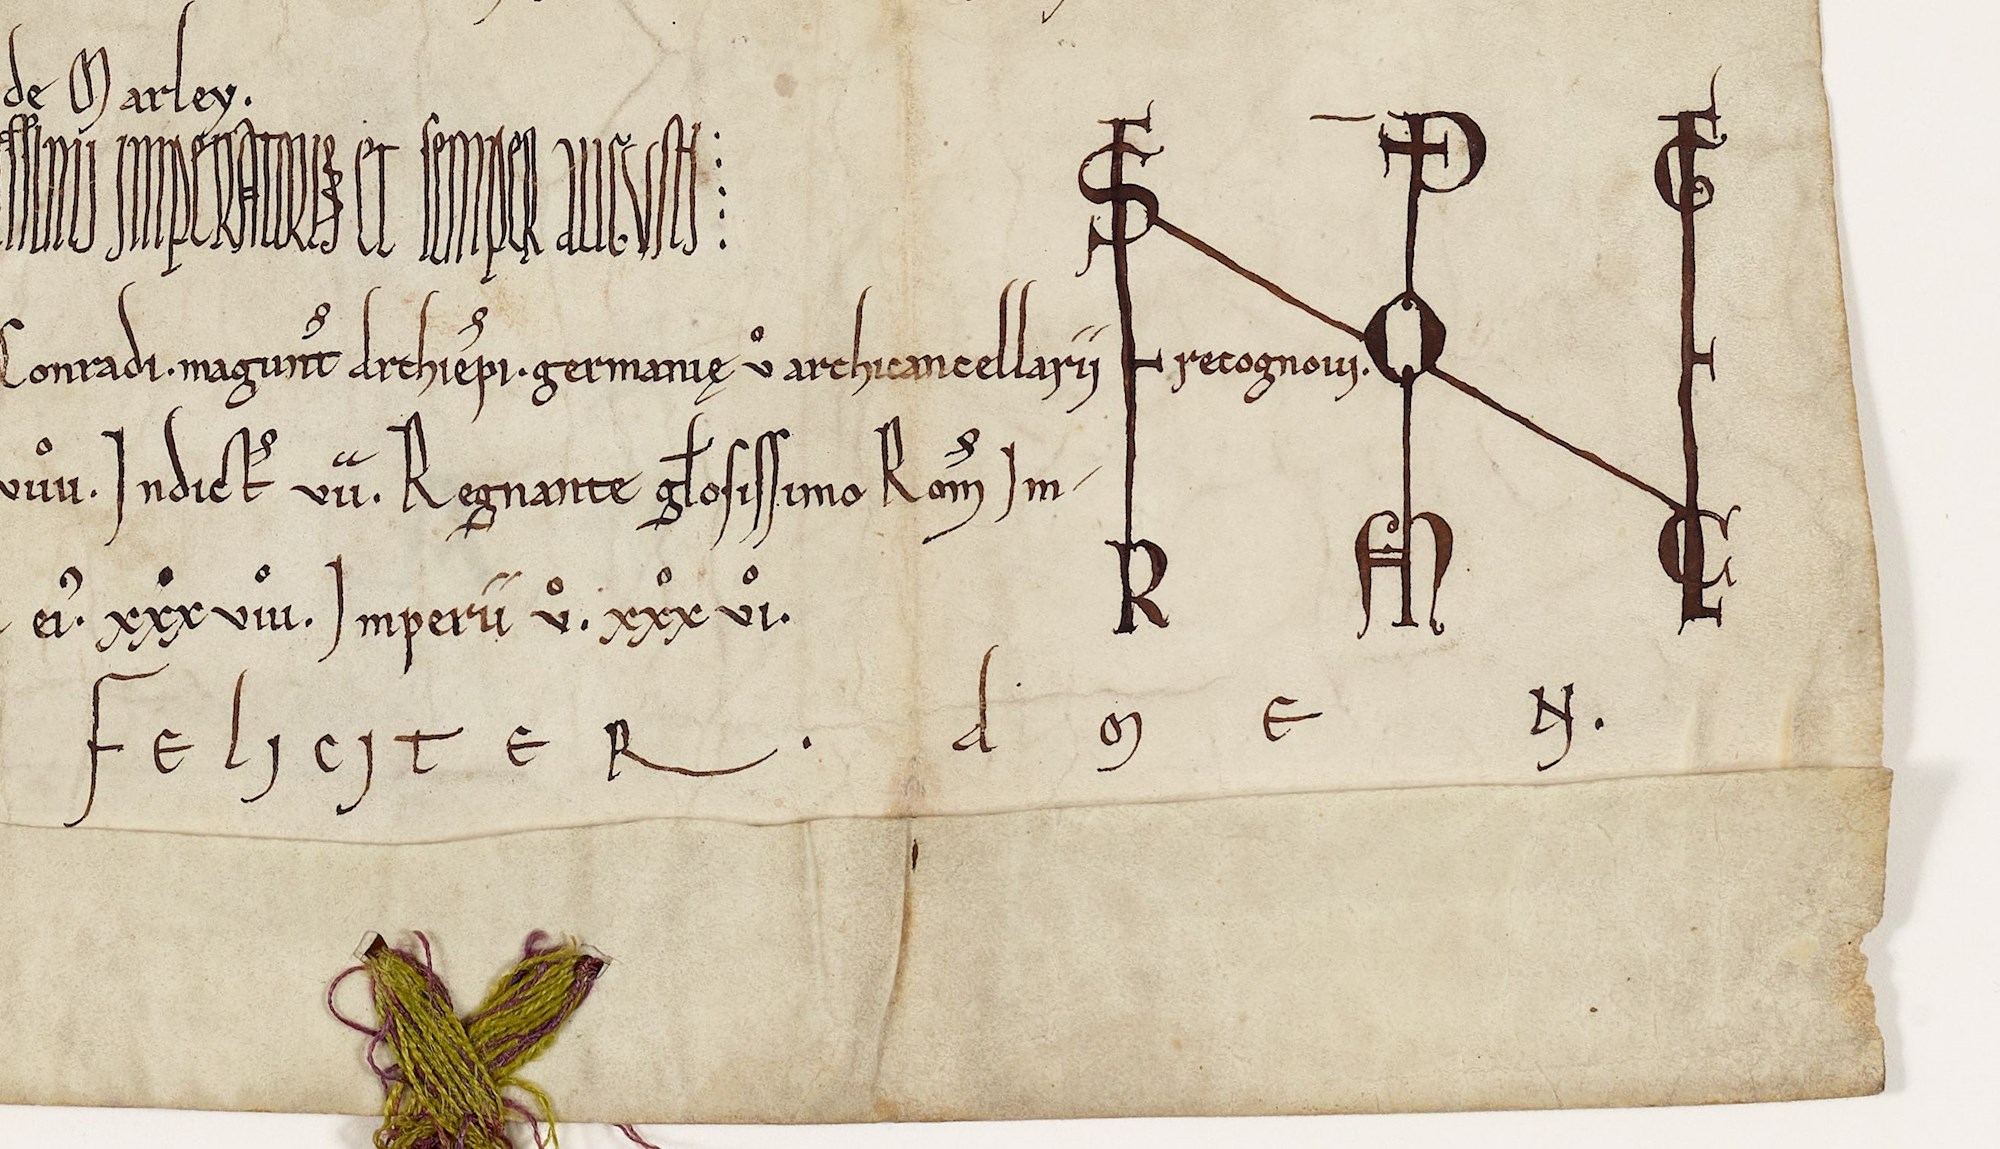 de Marley.
imperatoris et semper augusti:
Conradi. magunt̄ archiep̄i. germanię v̊ archicancellarii recognovi.
Indict̄ vii. Regnante gl̄osissimo Rom̄ Im-
ei. xxxviii. Imperii v̊. xxx vi.
FEliciTER. amEN.